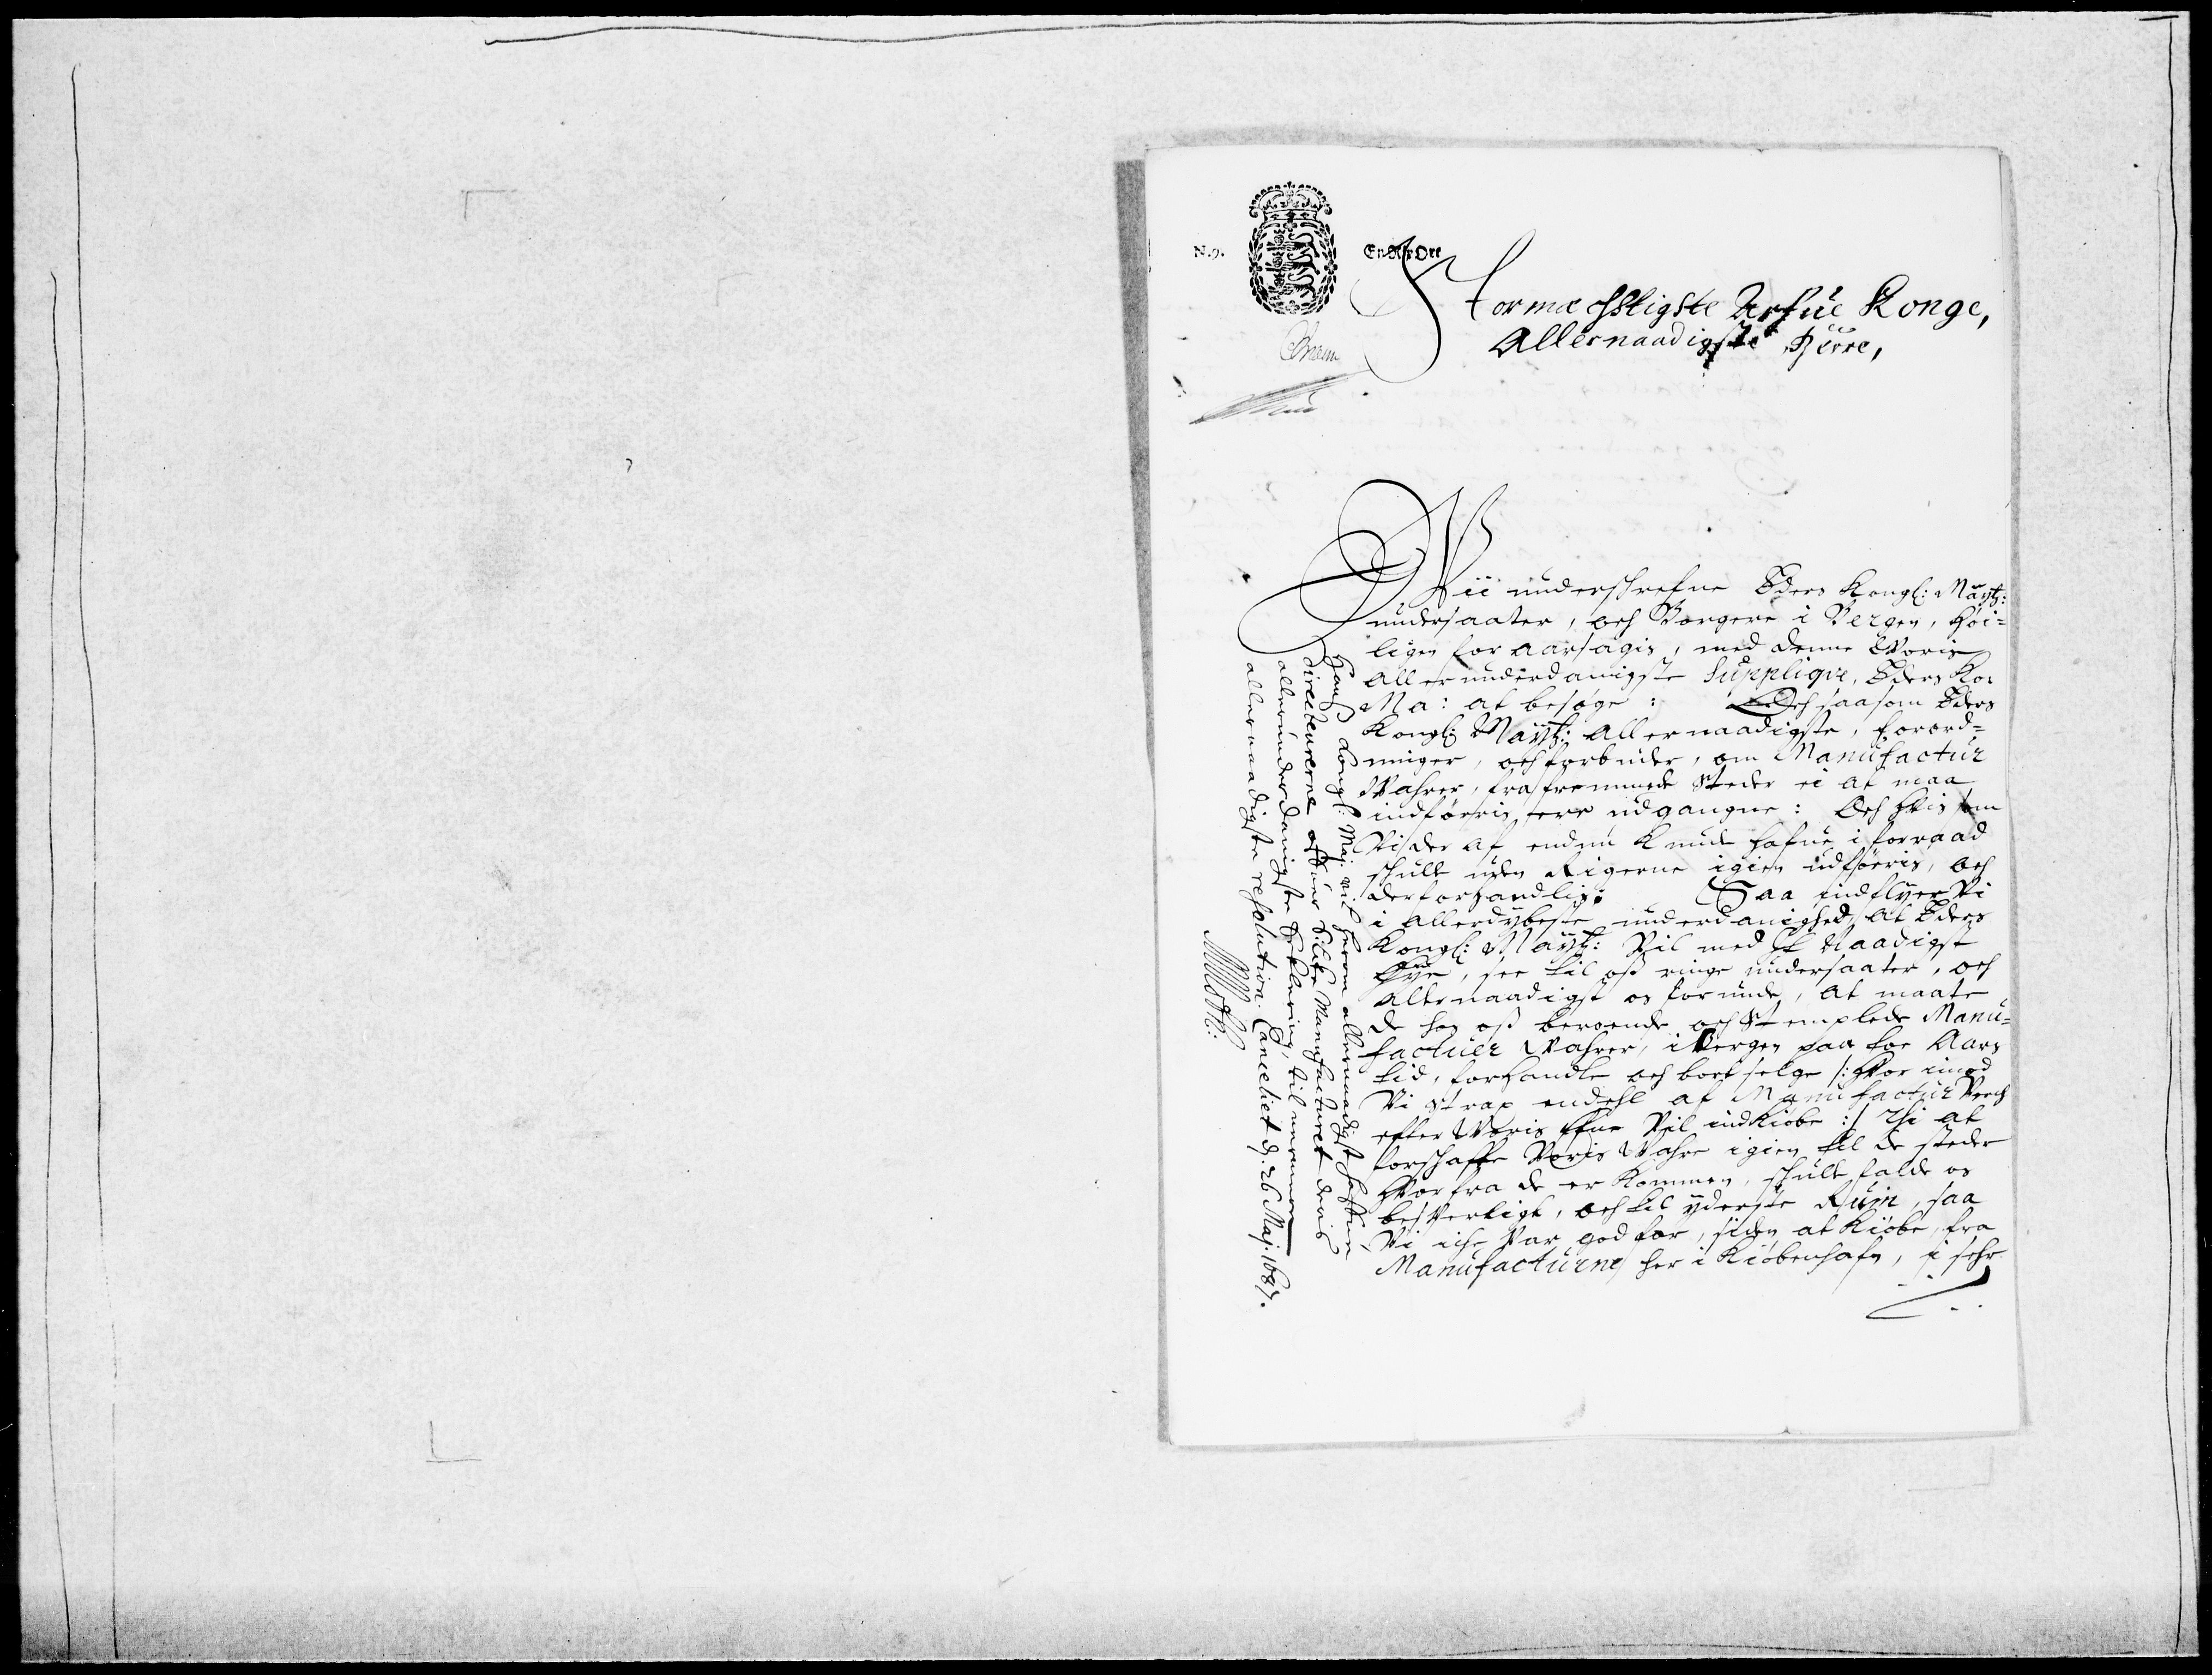 N.9.
En Rix Ort
Stormæchtigste Arfue Konge,
Allernaadigste Herre,
Wii underschrefne Eders Kongl: Maÿtz:
undersaater, och Borgere i Bergen, høi-
ligen foraarsagis, med denne Woris
allerunderdanigste Supplique, Eders Ko:
Ma: at besøge: Och saasom Eders
Kongl: Maÿtz: allernaadigste, forord-
ninger, och forbuder, om Manufactur
Wahrer, fra fremmede steder ei at maa
indføris, ere udgangne: Och Hvis som
Vi der af endnu Kunde hafue i forraad
schulle uden Rigerne igien udføeris, och
derforhandlis: Saa indflyer Vi
i allerdybeste underdanighed, at Eders
Kongl: Maÿtz: Vil med et Naadigst
Øye, see til oss ringe undersaater, och
allernaadigst os forunde, at maatte
de hos oss beroende och Stemplede Manu-
factuer Wahrer, i Bergen paa toe Aars
tid, forhandle och bort selge /: Hvor imod
Vi strax endehl af Manufactur Verch
efter Woris Efne Vil indkiøbe :/ Thi at
forschaffe Voris Wahre igien til de steder
Hvorfra de er Kommen, schulle falde os
besverligt, och til yderste Ruin, saa
Vi iche Var god for, siden at Kiøbe, fra
Manufacturne her i Kiøbenhafn, i sehr
Hans Kongl: Maj: vil herom allernaadigst hafue
directeurerne ofuer Silke Manufacturet deris
allerunderdanigste Erklering, til nermere
allernaadigste resolution. Canceliet d. 26 Maj. 1687.